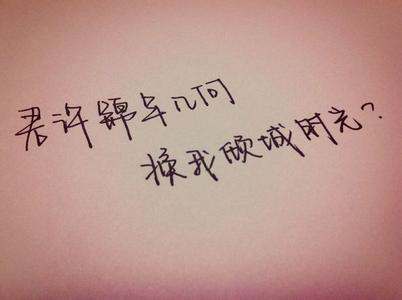 君许锦年几何
换我倾城时光?